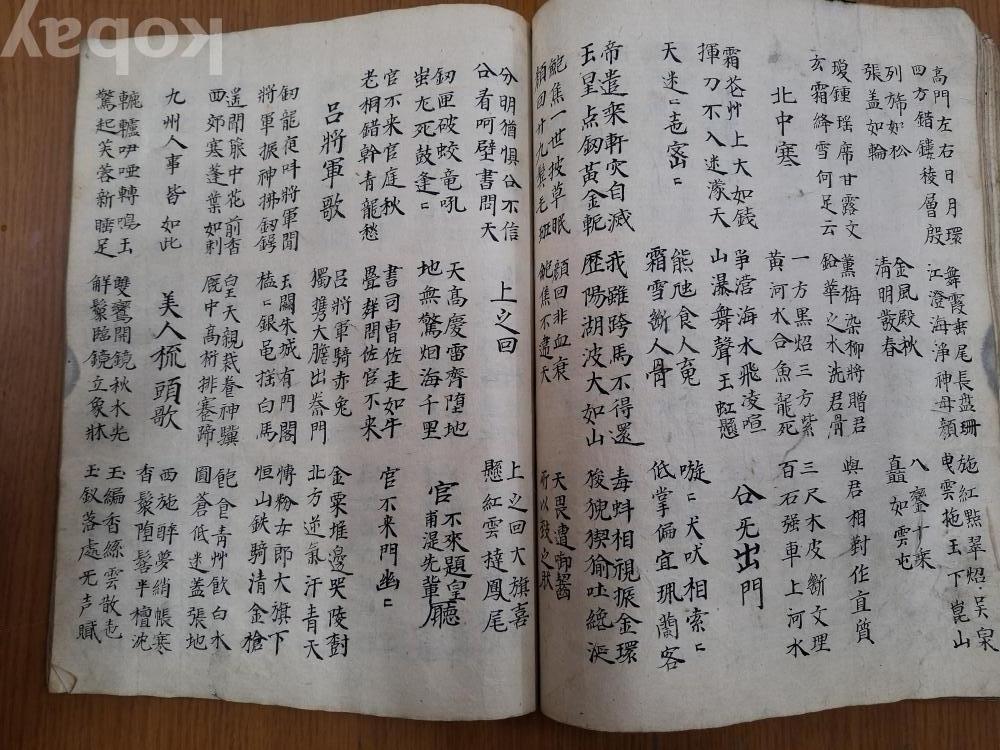 高門左右日月環
四方錯鏤稜層殷
舞霞垂尾長盤珊
江澄海淨神母顏
施紅點翠照吳泉
曳雲拖玉下崑山
列旆如松
張盖如輪
金風殿秋
清明發春
八鑾十乘
矗如雲屯
瓊鍾瑤席甘露文
玄霜絳雪何足云
薰梅染柳將贈君
鉛華之水洗君骨
與君相對作眞質
北中寒
一方黑炤三方紫
黃河氷合魚龍死
三尺木皮斷文理
百石强車上河水
霜花艸上大如錢
揮刀不入迷濛天
爭瀯海水飛凌喧
山瀑無聲玉虹懸
公无出門
天迷〻地密〻
熊虺食人䰟
霜雪斷人骨
嗾〻犬吠相索〻
低掌偏宜珮蘭客
帝遣乘軒灾自滅
玉星点釰黃金軛
我雖跨馬不得還
歷陽湖波大如山
毒蚪相視振金環
狻猊猰貐吐饞涎
鮑焦一世披草眠
顏回廿九鬂毛班
顏回非血衰
鮑焦不違天
天畏遭啣齧
所以致之狀
分明猶惧公不信
公看呵壁書問天
上之回
上之回大旗喜
懸紅雲撻鳳尾
釰匣破蛟竜吼
蚩尤死鼓逢〻
天高慶雷齊墮地
地無驚烟海千里
官不來題皇甫湜先輩廳
官不來官庭秋
老桐錯幹青龍愁
書司曹佐走如牛
疊聲問佐官不來
官不來門幽〻
呂將軍歌
呂將軍騎赤兔
獨携大膽出秦門
金粟堆邊哭陵樹
北方逆氣汗青天
釰龍夜叫將軍閒
將軍振神拂釰鍔
玉闕朱城有門閣
榼〻銀黽揺白馬
傅粉女郎大旗下
恒山鉄騎請金槍
遙聞箙中花前香
西郊寒蓬葉如刺
皇天親栽養神驥
厩中高桁排蹇蹄
飽食青艸飮白水
圓蒼低迷盖張地
九州人事皆如此
美人梳頭歌
西施醉夢綃帳寒
香鬟墮髻半檀沈
轆轤咿啞轉鳴玉
驚起芙蓉新睡足
雙鸞開鏡秋水光
解鬟臨鏡立象牀
玉編香絲雲散地
玉釵落處无声膩
kobay